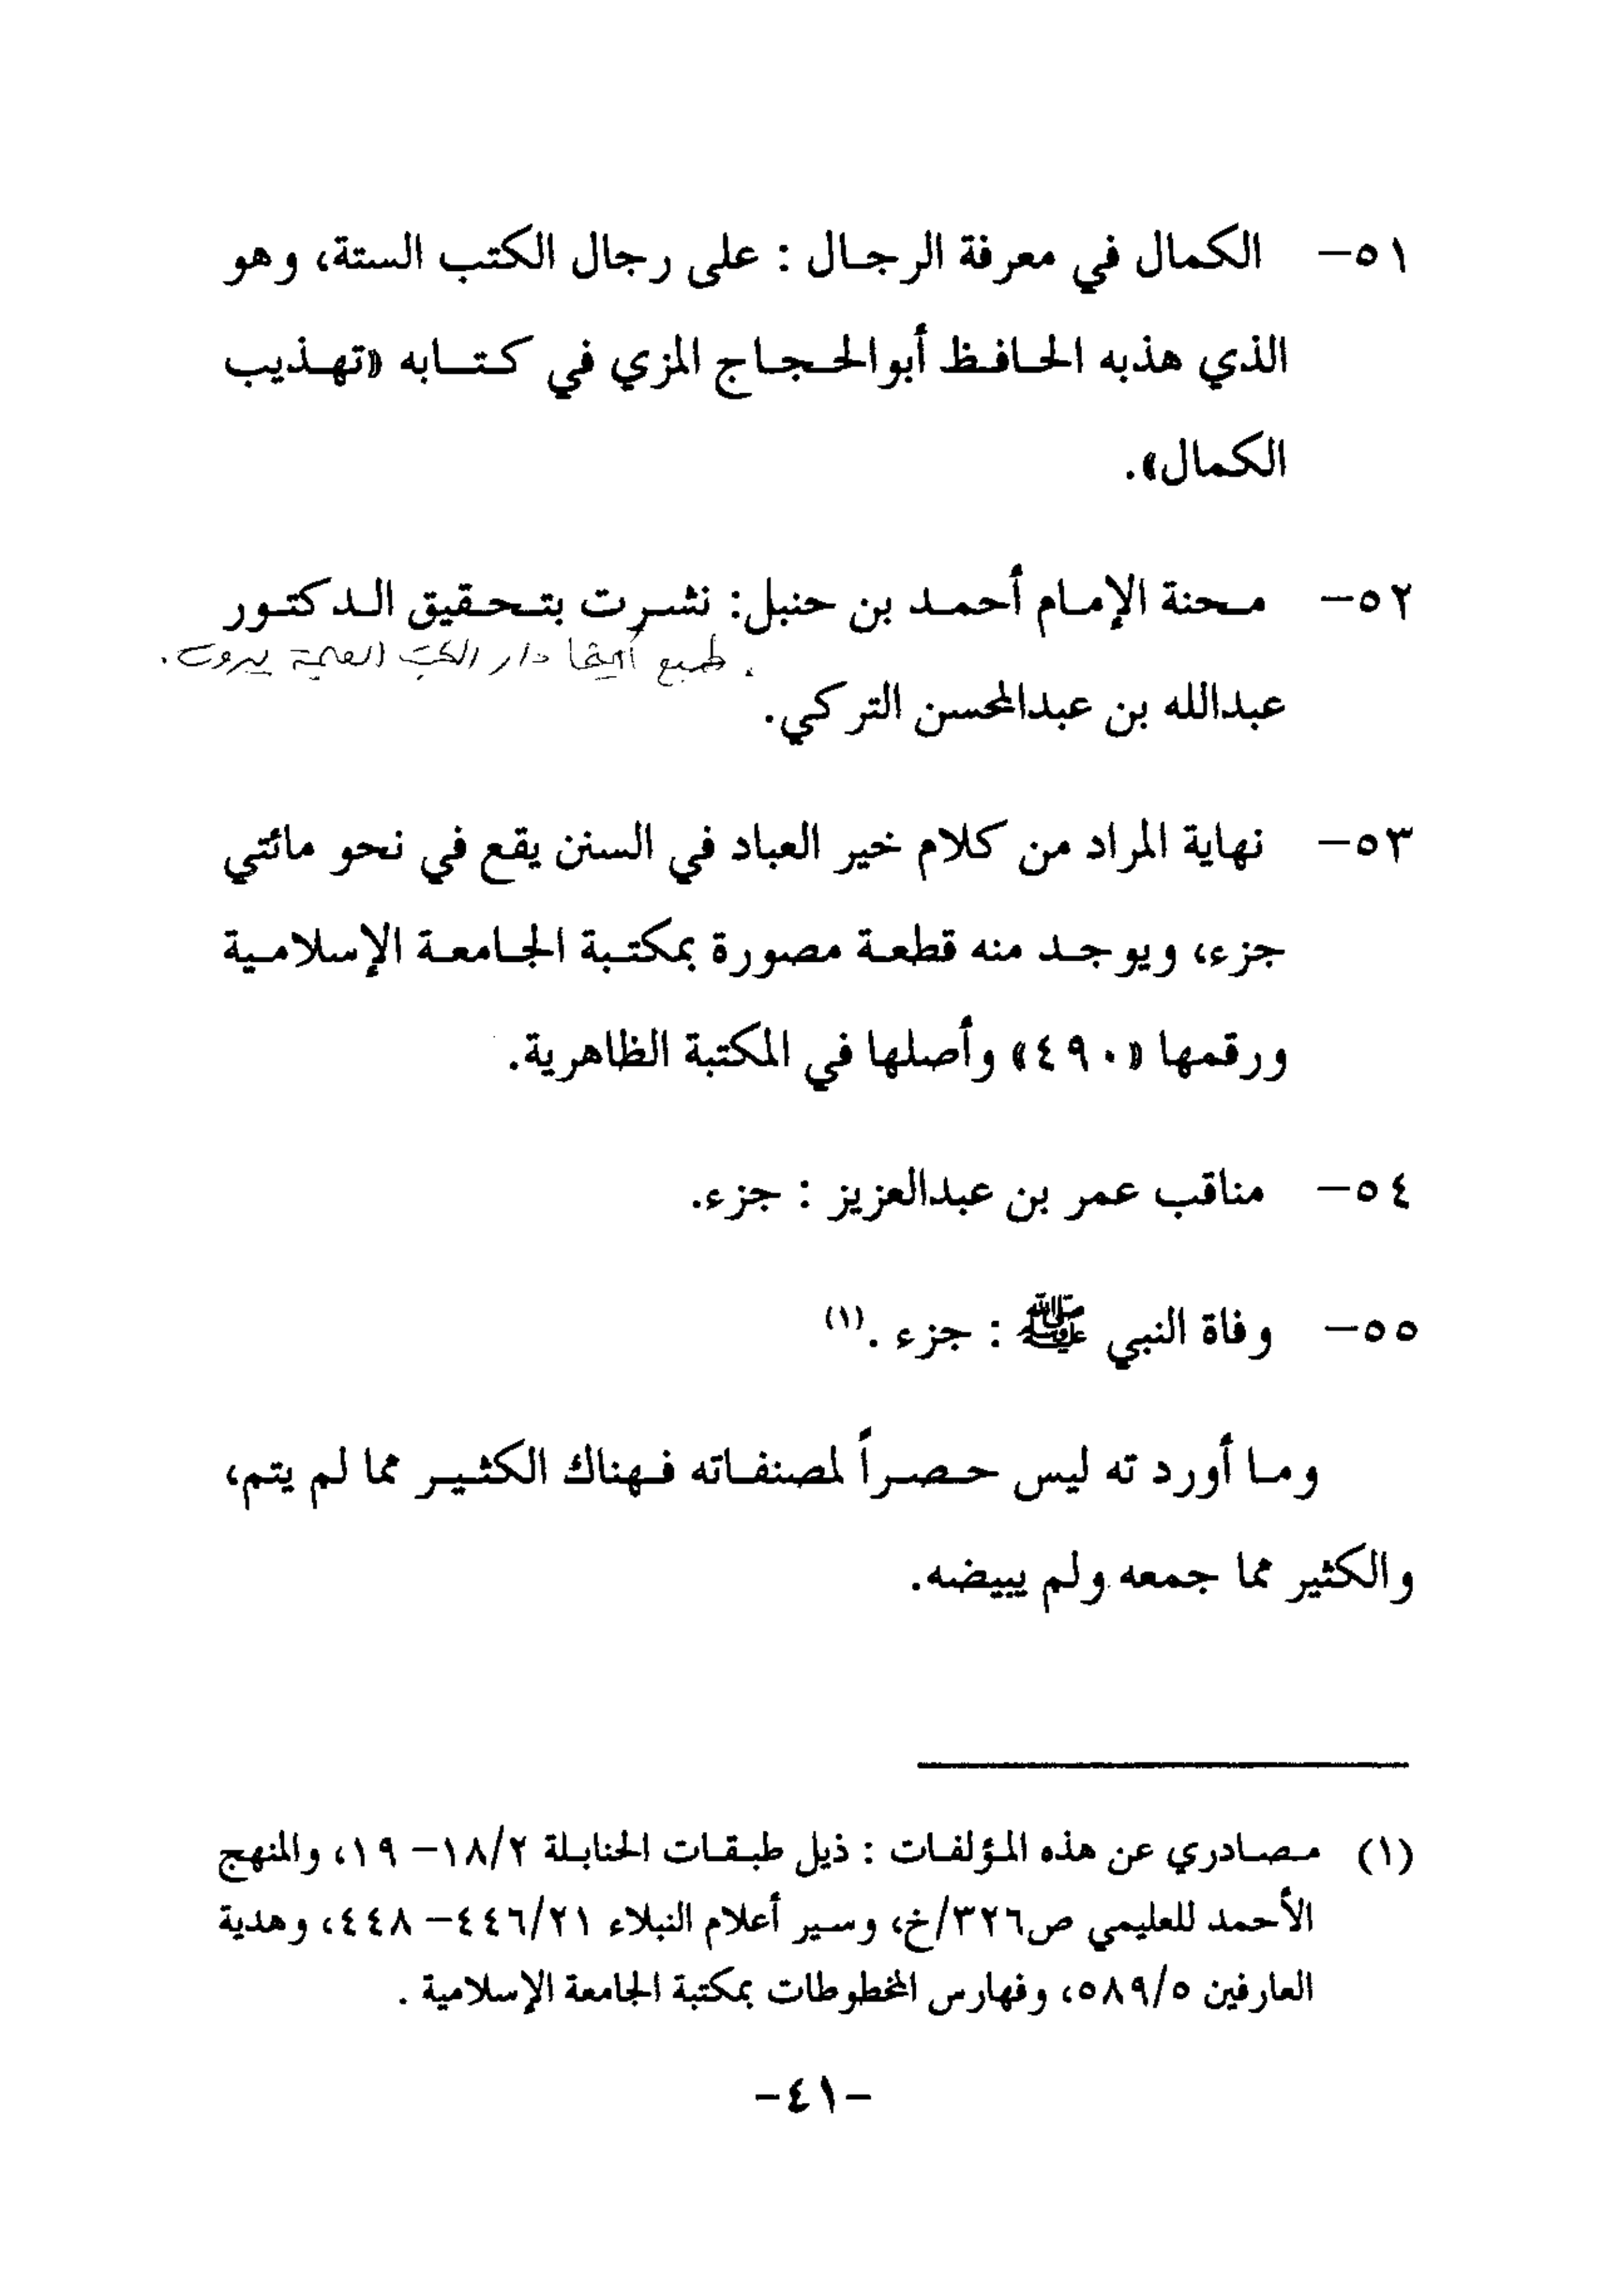 ٥١- الكمال في معرفة الرجال : على رجال الكتب الستة، وهو
الذي هذبه الحافظ أبوالحجاج المزي في كتابه «تهذيب
الكمال».
٥٢- محنة الإمام أحمد بن حنبل: نشرت بتحقيق الدكتور
. طبع أيضا دار الكتب العلمية بيروت.
عبدالله بن عبدالمحسن التركي.
٥٣- نهاية المراد من كلام خير العباد في السنن يقع في نحو مائتي
جزء، ويوجد منه قطعة مصورة بمكتبة الجامعة الإسلامية
ورقمها «٤٩٠» وأصلها في المكتبة الظاهرية.
٥٤- مناقب عمر بن عبدالعزيز : جزء.
٥٥- وفاة النبي ﷺ : جزء .(١)
وما أوردته ليس حصراً لمصنفاته فهناك الكثير مما لم يتم،
والكثير مما جمعه ولم يبيضه.
(١) مصادري عن هذه المؤلفات : ذيل طبقات الحنابلة ١٨/٢- ١٩، والمنهج
الأحمد للعليمي ص٣٢٦/خ، وسير أعلام النبلاء ٤٤٦/٢١- ٤٤٨، وهدية
العارفين ٥٨٩/٥، وفهارس المخطوطات بمكتبة الجامعة الإسلامية .
-٤١-